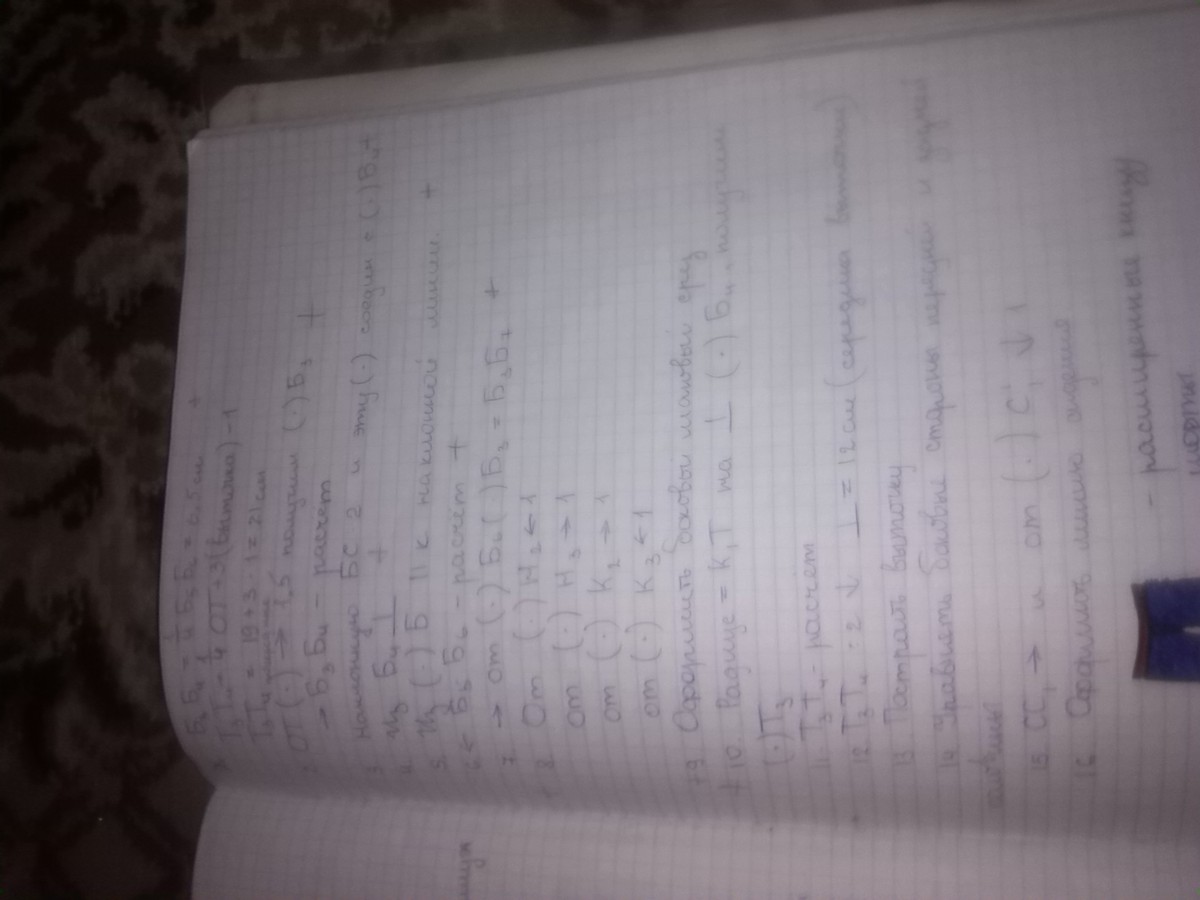 Б₃ Б₄ = ½ Б₅ Б₂ = 0,5см +
Т₃ Т₄ = ¼ ОТ + 3(вытачка) - 1
Т₃ Т₄ = 19 + 3 - 1 = 21см
2. ОТ (·) → 1,5 получим (·) Б₃ +
→ Б₃ Б₄ - расчет
3. наклонную БС 2 и эту (·) соедин с (·) Б₄ +
4. Из Б₄ ⊥ +
5. Из (·) Б || к наклонной линии. +
6. ← Б₅ Б₆ - расчёт +
7. → от (·) Б₆ (·) Б₃ = Б₃ Б₇ +
8. От (·) Н₂ ← 1
от (·) Н₃ → 1
от (·) К₂ → 1
от (·) К₃ ← 1
+9. Оформить боковой шаговый срез
+10. Радиус = К₁Т на ⊥ (·) Б₄. получим
(·) Т₃
11. Т₃Т₄ - расчет
12. Т₃Т₄ : 2 ↓ ⊥ = 12см (середина вытачки)
13. Построить вытачку
14. Уравнять боковые стороны передней и задней
15. СС₁ → и от (·) С₁ ↓ 1
16. Оформить линию сидения
- расширенные книзу